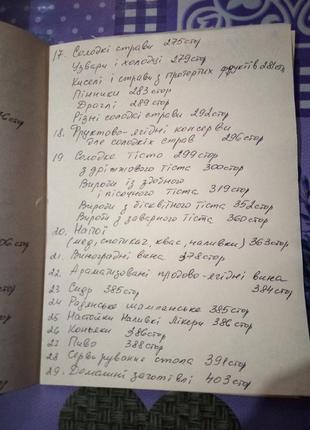 17. Солодкі страви 275стор
Узвари і холодці 279стор
Киселі і страви з протертих фруктів 281стор
Пінники 283стор
Драглі 289стор
Різні солодкі страви 292стор
18. Фруктово-ягідні консерви
для солодких страв 296стор
19. Солодке тісто 299стор
з дріжжового тіста 300стор
Вироби із здобного
і пісочного тіста 319стор
Вироби з бісквітного тіста 352стор
Вироби з заварного тіста 360стор
20. Напої
(мед, спотикач, квас, наливки) 363стор
21. Виноградні вина 378стор
22. Ароматизовані плодово-ягідні вина
384стор
23 Сидр 385стор
24 Радянське шампанське 385стор
25 Настойки Наливкі Лікери 386стор
26 Коньяки 386стор
27 Пиво 388стор
28 Сервірування стола 391стор
29. Домашні заготівлі 403стор